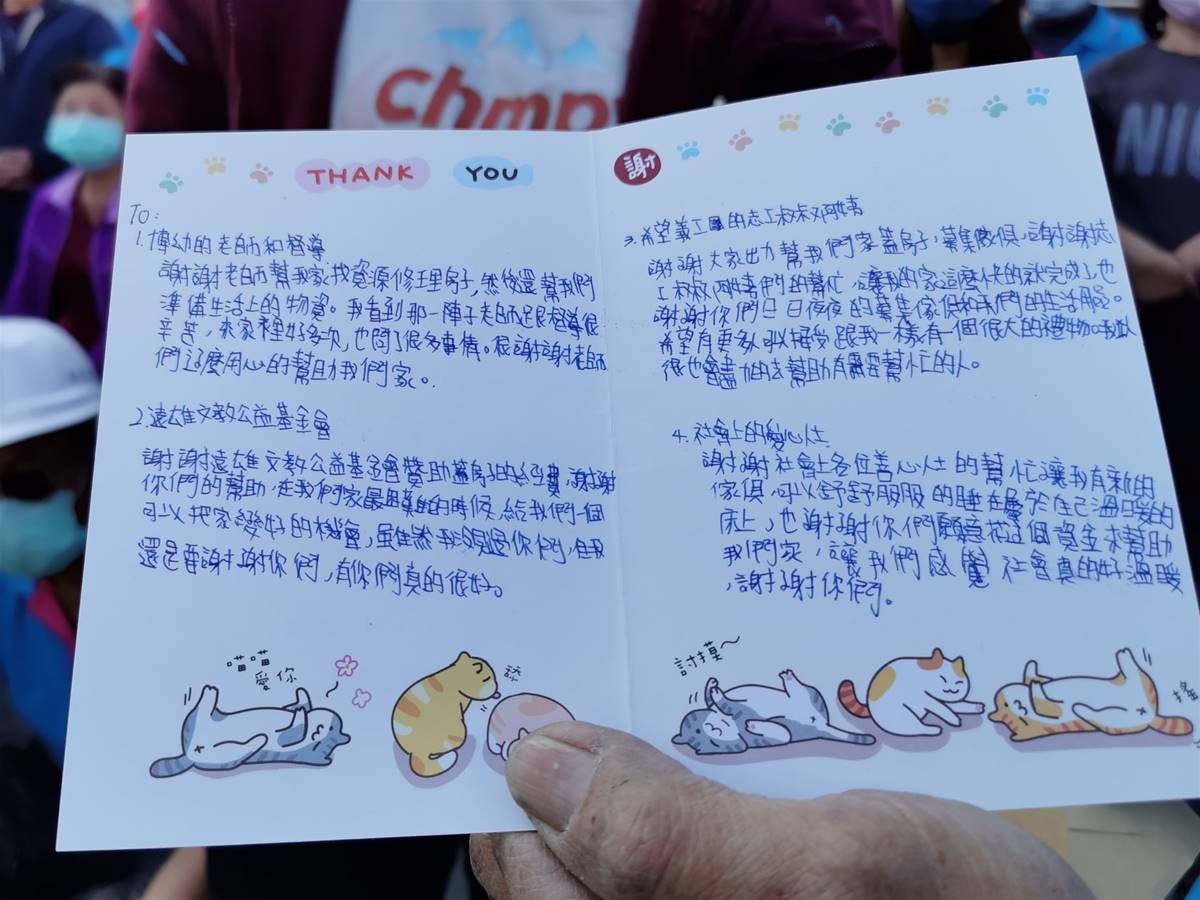 chmp
NIC
THANK YOU
謝
TO:
1.博幼的老師和督導
謝謝老師幫我家找資源修理房子,然後還幫我們
準備生活上的物資。我看到那一陣子老師跟督導很
辛苦,來家裡好多次,也問了很多事情。很謝謝老師
們這麼用心的幫助我們家。
2.遠雄文教公益基金會
謝謝遠雄文教公益基金會贊助蓋房子的經費,謝謝
你們的幫助,在我們家最困難的時候,給我們一個
可以把家變好的機會,雖然我沒見過你們,但我
還是要謝謝你們,有你們真的很好。
3.希望義工團的志工叔叔阿姨
謝謝大家出力幫我們家蓋房子,募集傢俱,謝謝志
工叔叔阿姨們的幫忙,讓我的家這麼快的就完成了,也
謝謝你們日日夜夜的募集傢俱和我們的生活用品。
希望有更多 接受跟我一樣有一個很大的禮物,我以
後也會盡力的去幫助有需要幫忙的人。
4.社會上的愛心人士
謝謝社會上各位善心人士的幫忙讓我有新的
傢俱,可以舒舒服服的睡在屬於自己溫暖的
床上,也謝謝你們願意花這個資金來幫助
我們家,讓我們感覺社會真的好溫暖
,謝謝你們。
喵喵
愛你
舔
討摸~